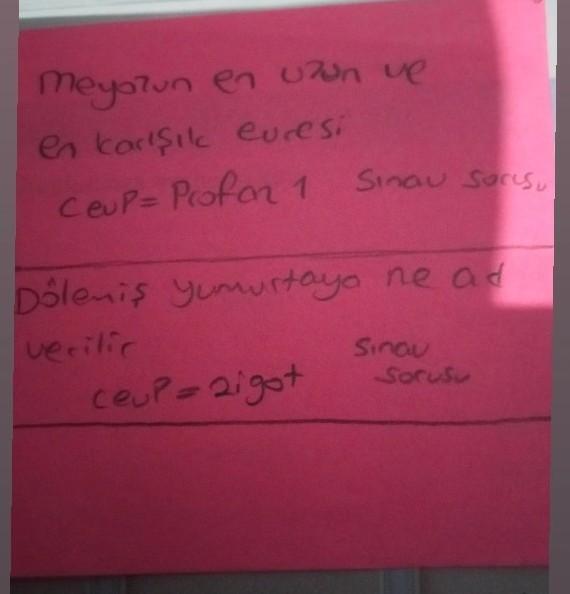 Meyozun en uzun ve
en karışık evresi
Cevp= Profaz 1 Sınav sorusu
Dölemiş yumurtaya ne ad
verilir Sınav
sorusu
Cevp= Zigot